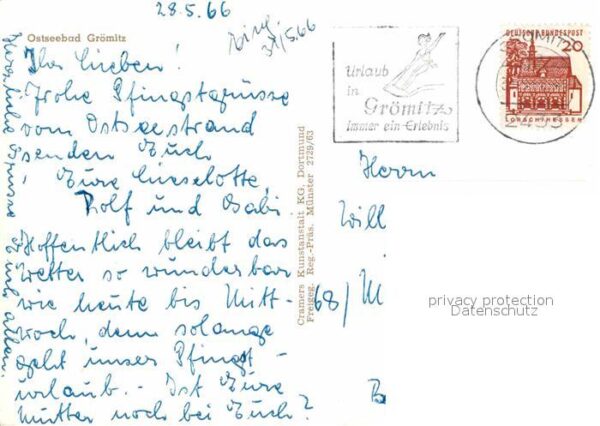 28.5.66
Ostseebad Grömitz
31/5.66
Ihr Lieben!
Frohe Pfingstgrüsse
vom Ostseestrand
senden Euch
Eure Lieselotte,
Rolf und Gabi.
Hoffentlich bleibt das
Wetter so wunderbar
wie heute bis Mitt-
woch, denn solange
geht unser Pfingst-
urlaub. - Ist Eure
Mutter noch bei Euch?
Herzliche Grüsse
allen.
Cramers Kunstanstalt KG, Dortmund
Freigeg. Reg.-Präs. Münster 2729/63
Urlaub
in
Grömitz
immer ein Erlebnis
GRÖMITZ
DEUTSCHE BUNDESPOST
20
LORSCH/HESSEN
Herrn
Will
68/M
B
privacy protection
Datenschutz